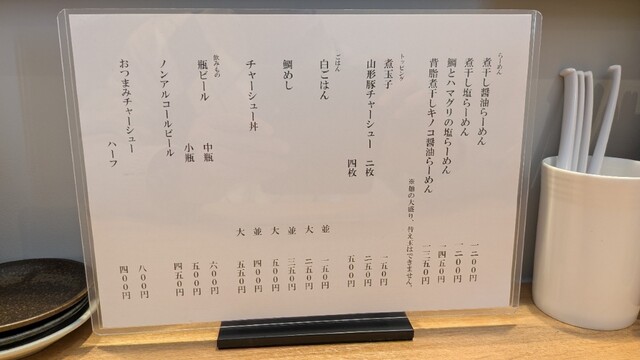 らーめん
煮干し醤油らーめん 一二〇〇円
煮干し塩らーめん 一二〇〇円
鯛とハマグリの塩らーめん 一四五〇円
背脂煮干しキノコ醤油らーめん 一三五〇円
※麺の大盛り、替え玉はできません。
トッピング
煮玉子 一五〇円
山形豚チャーシュー 二枚 二五〇円
四枚 五〇〇円
ごはん
白ごはん 並 一五〇円
大 二五〇円
鯛めし 並 三五〇円
大 五〇〇円
チャーシュー丼 並 四〇〇円
大 五五〇円
飲みもの
瓶ビール 中瓶 六〇〇円
小瓶 五〇〇円
ノンアルコールビール 四五〇円
おつまみチャーシュー 八〇〇円
ハーフ 四〇〇円